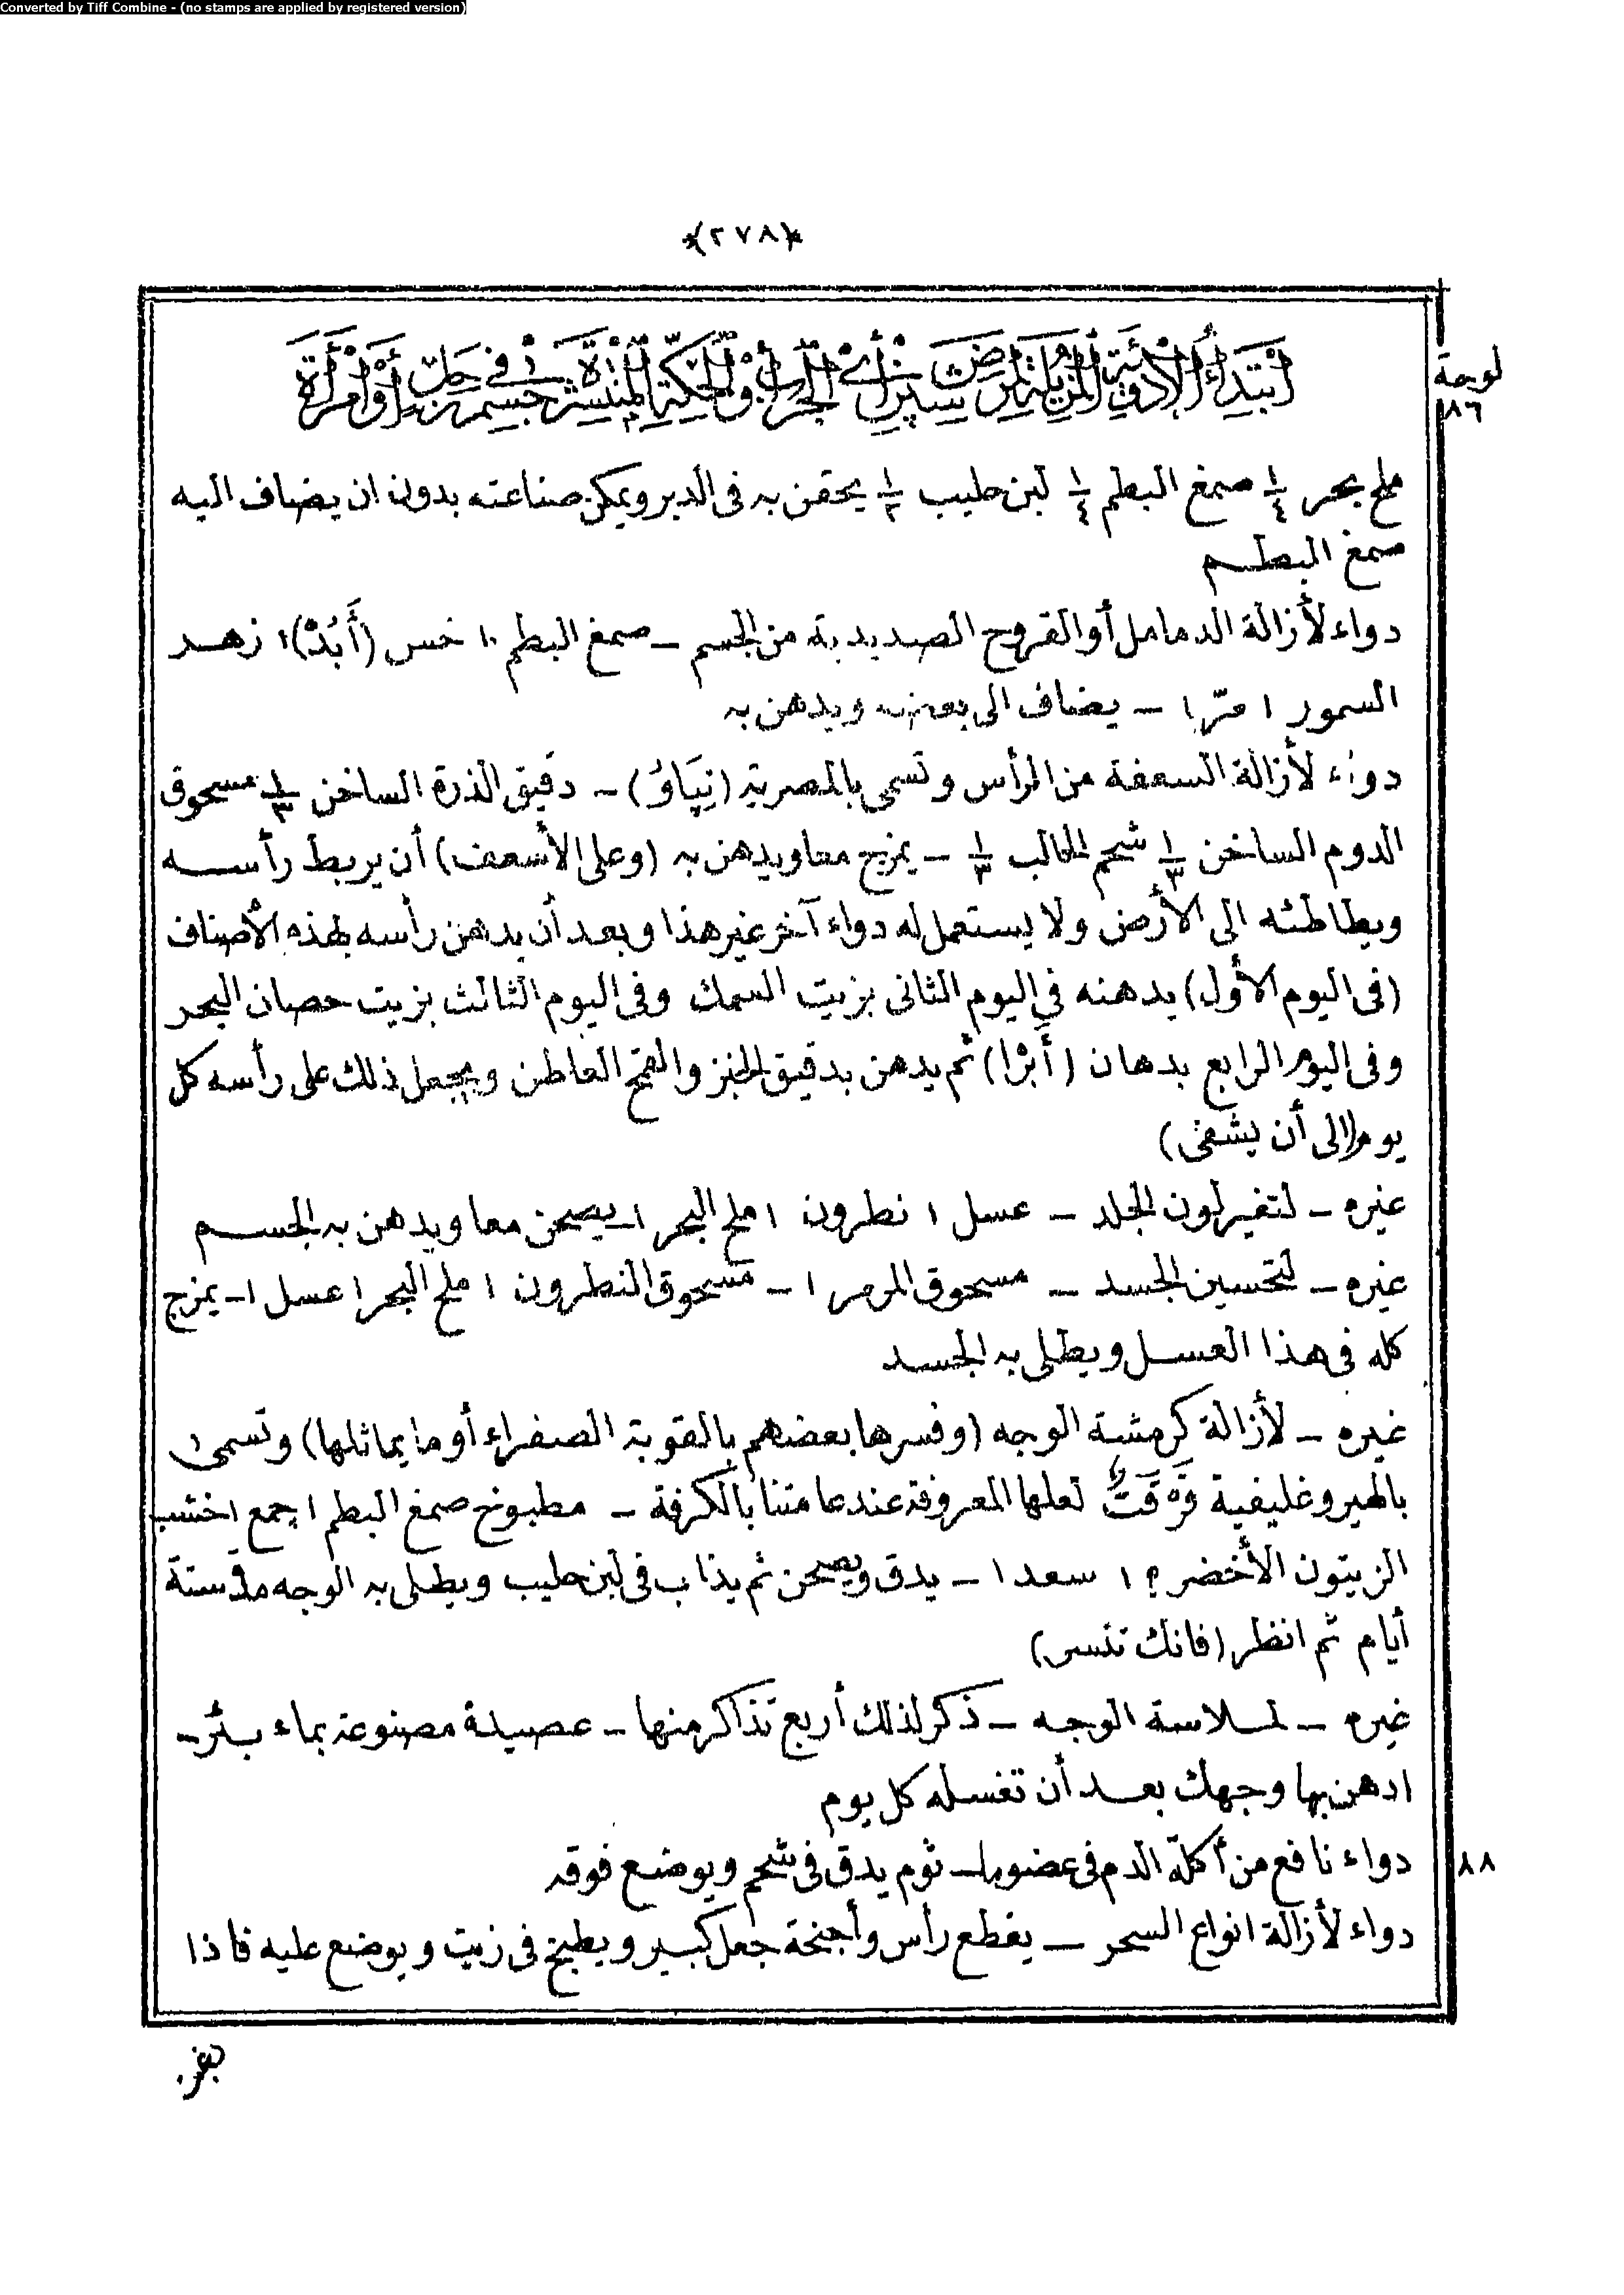 Converted by Tiff Combine - (no stamps are applied by registered version)
*(٢٧٨)*
لوحة
٨٦
ابتداء الأدوية المزيلة لمرض سيبر أى الجرب أو الحكة المنتشرة فى جسم رجل أو امرأة
ملح بحر ١/٤ صمغ البطم ١/٤ لبن حليب ١/٢ يحقن به فى الدبر ويمكن صناعته بدون ان يضاف اليه
صمغ البطم
دواء لأزالة الدمامل أو القروح الصديدية من الجسم ــ صمغ البطم ١٠ خس (أَبُدْ) ١ زهر
السمور ١ مرّ ١ ــ يضاف الى بعضه ويدهن به
دواء لأزالة السعفة من الرأس وتسمى بالمصرية (نِپَاوُ) ــ دقيق الذرة الساخن ١/٣ مسحوق
الدوم الساخن ١/٣ شحم الخالب ١/٣ ــ يمزج معا ويدهن به (وعلى الأسعف) أن يربط رأسه
ويطاطئه الى الأرض ولا يستعمل له دواء آخر غير هذا وبعد أن يدهن رأسه بهذه الأصناف
(فى اليوم الأول) يدهنه فى اليوم الثانى بزيت السمك وفى اليوم الثالث بزيت حصان البحر
وفى اليوم الرابع بدهان (أَبْرَا) ثم يدهن بدقيق الخبز والقمح العاطن ويجعل ذلك على رأسه كل
يوم (الى أن يشفى)
غيره ــ لتغير لون الجلد ــ عسل ١ نطرون ١ ملح البحر ١ ــ يصحن معا ويدهن به الجسم
غيره ــ لتحسين الجسد ــ مسحوق المرمر ١ ــ مسحوق النطرون ١ ملح البحر ١ عسل ١ ــ يمزج
كله فى هذا العسل ويطلى به الجسد
غيره ــ لأزالة كرمشة الوجه (وفسرها بعضهم بالقوبة الصفراء أو ما يماثلها) وتسمى
بالهيروغليفية لعلها المعروفة عند عامتنا بالكرفة ــ مطبوخ صمغ البطم ١ جمع ١ خشب
الزيتون الأخضر ؟ ١ سعد ١ ــ يدق ويصحن ثم يذاب فى لبن حليب ويطلى به الوجه مدّة ستة
أيام ثم انظر (فانك تنسر)
غيره ــ لملاسة الوجه ــ ذكر لذلك أربع تذاكر منها ــ عصيدة مصنوعة بماء بئر ــ
ادهن بها وجهك بعد أن تغسله كل يوم
٨٨
دواء نافع من أكلة الدم فى عضو ما ــ ثوم يدق فى شحم ويوضع فوقه
دواء لأزالة انواع السحر ــ يقطع رأس وأجنحة جعل كبير ويطبخ فى زيت ويوضع عليه فاذا